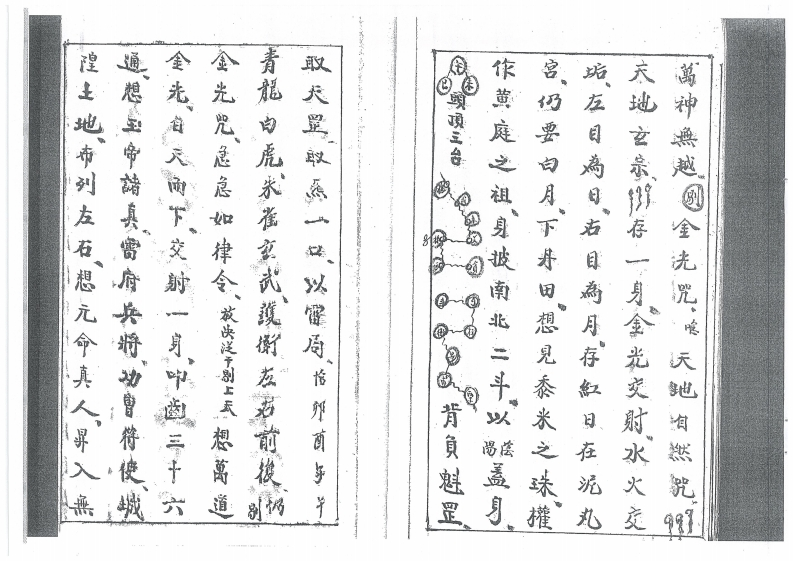 萬神無越別金光咒唸天地自然咒
天地玄宗存一身金光交射水火交
垢左目為日右目為月存紅日在泥丸
宮仍要白月下丹田想見黍米之珠權
作黃庭之祖身披南北二斗以陰陽蓋身
頭頂三台
背負魁罡
取天罡取炁一口以雷局掐卯酉午
青龍白虎朱雀玄武護衛左右前後
金光咒急急如律令想萬道
金光自天而下交射一身叩齒三十六
通想玉帝諸真雷府兵將功曹符使城
隍土地布列左右想元命真人昇入無